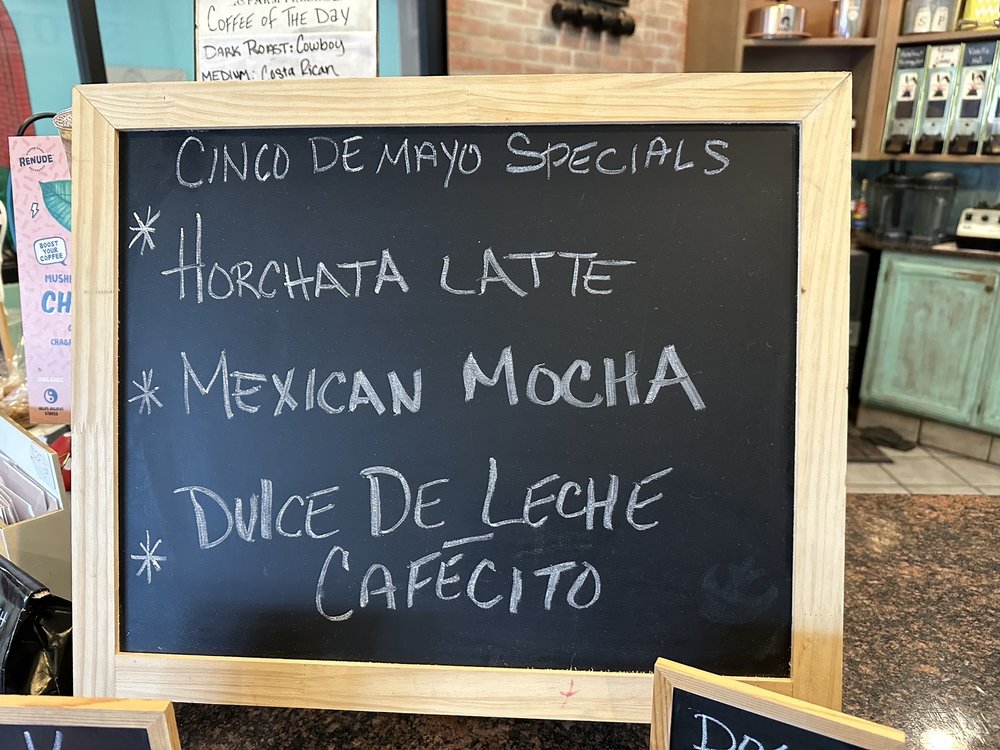 Coffee of The Day
Dark Roast: Cowboy
Medium: Costa Rican
Cinco De Mayo Specials
* Horchata Latte
* Mexican Mocha
* Dulce De Leche
Cafécito
RENUDE
BOOST
YOUR
COFFEE
MUSH
CH
CHAGA
ORGANIC
HELPS RELIEVE
STRESS
S F